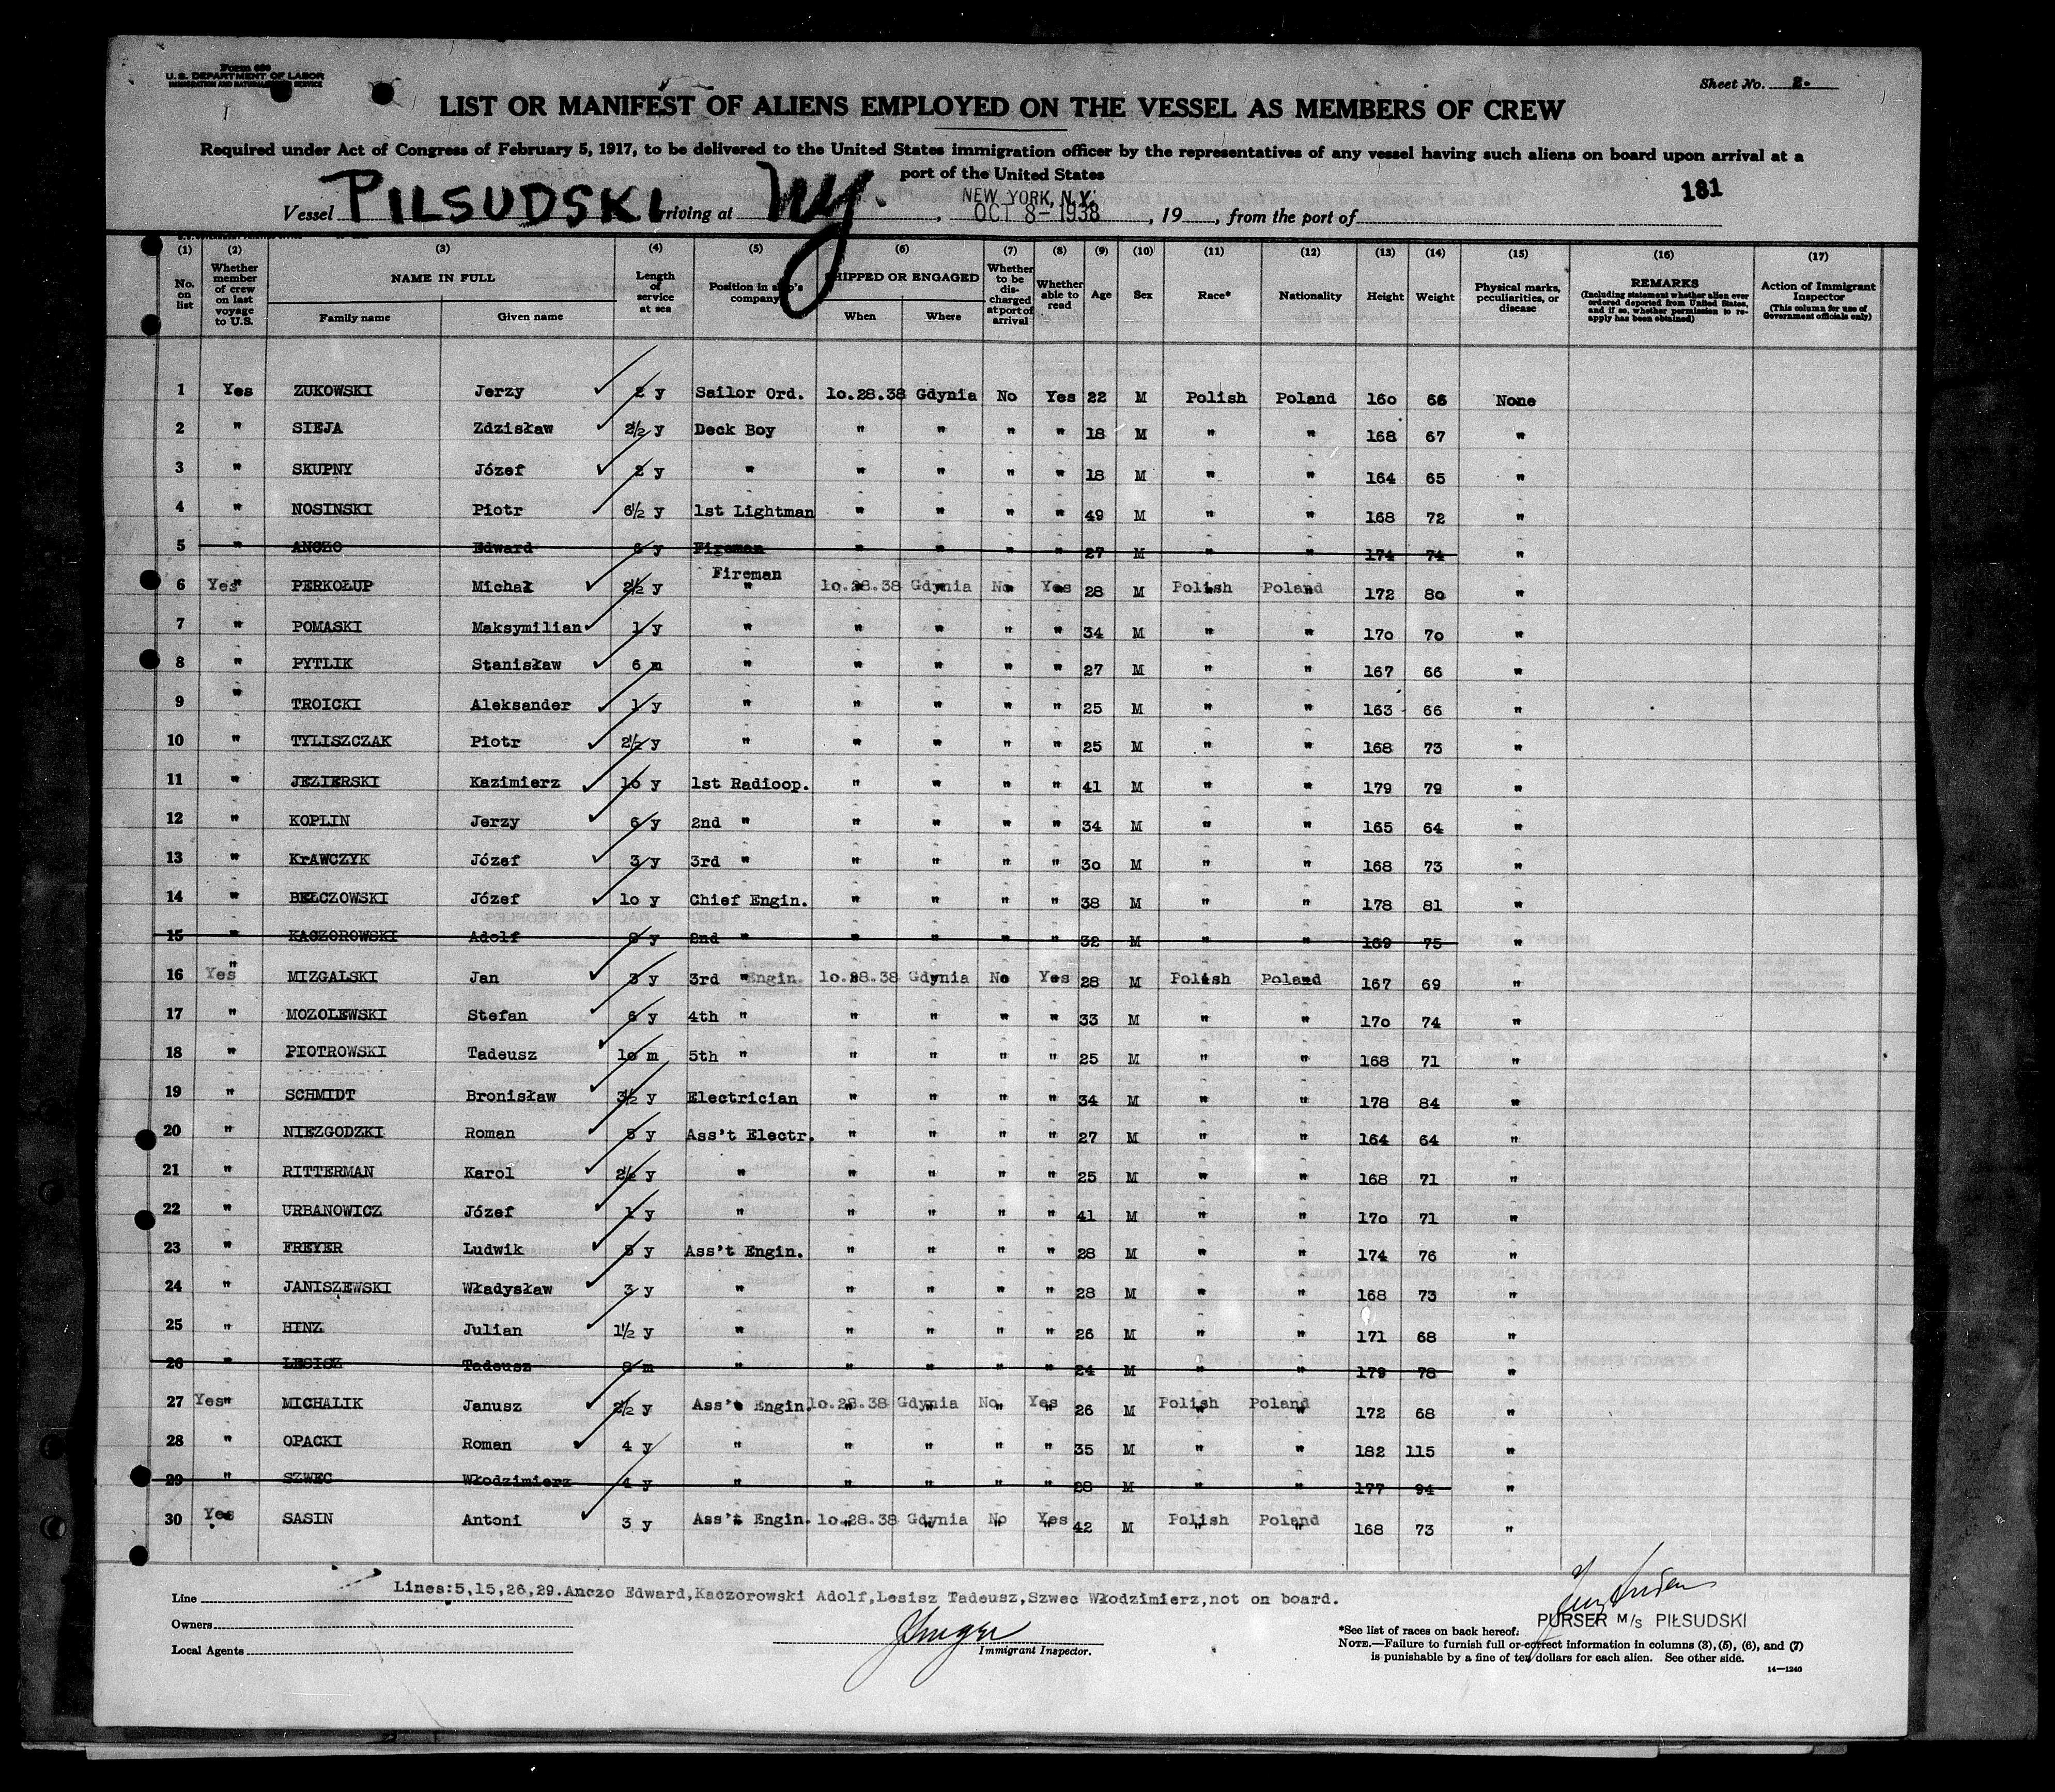 Form 680
U. S. DEPARTMENT OF LABOR
IMMIGRATION AND NATURALIZATION SERVICE
Sheet No. 2.
LIST OR MANIFEST OF ALIENS EMPLOYED ON THE VESSEL AS MEMBERS OF CREW
Required under Act of Congress of February 5, 1917, to be delivered to the United States immigration officer by the representatives of any vessel having such aliens on board upon arrival at a
port of the United States
181
Vessel PILSUDSKI arriving at Ny. , NEW YORK, N.Y. OCT 8-1938 , 19 , from the port of
(1) (2) (3) (4) (5) (6) (7) (8) (9) (10) (11) (12) (13) (14) (15) (16) (17)
No. on list Whether member of crew on last voyage to U.S. NAME IN FULL Family name Given name Length of service at sea Position in ship's company SHIPPED OR ENGAGED When Where Whether to be discharged at port of arrival Whether able to read Age Sex Race* Nationality Height Weight Physical marks, peculiarities, or disease REMARKS (Including statement whether alien ever ordered deported from United States, and if so, whether permission to reapply has been obtained) Action of Immigrant Inspector (This column for use of Government officials only)
1 Yes ZUKOWSKI Jerzy 2 y Sailor Ord. 10.28.38 Gdynia No Yes 22 M Polish Poland 160 66 None
2 " SIEJA Zdzisław 2½ y Deck Boy " " " " 18 M " " 168 67 "
3 " SKUPNY Józef 2 y " " " " " 18 M " " 164 65 "
4 " NOSINSKI Piotr 6½ y 1st Lightman " " " " 49 M " " 168 72 "
5 " ANCZO Edward 6 y Fireman " " " " 27 M " " 174 74 "
6 Yes" PERKOŁUP Michał 2½ y Fireman " 10.28.38 Gdynia No Yes 28 M Polish Poland 172 80 "
7 " POMASKI Maksymilian 1 y " " " " " 34 M " " 170 70 "
8 " PYTLIK Stanisław 6 m " " " " " 27 M " " 167 66 "
9 " TROICKI Aleksander 1 y " " " " " 25 M " " 163 66 "
10 " TYLISZCZAK Piotr 2½ y " " " " " 25 M " " 168 73 "
11 " JEZIERSKI Kazimierz 10 y 1st Radioop. " " " " 41 M " " 179 79 "
12 " KOPLIN Jerzy 6 y 2nd " " " " " 34 M " " 165 64 "
13 " KrAWCZYK Józef 3 y 3rd " " " " " 30 M " " 168 73 "
14 " BEŁCZOWSKI Józef 10 y Chief Engin. " " " " 38 M " " 178 81 "
15 " KACZOROWSKI Adolf 8 y 2nd " " " " " 32 M " " 169 75 "
16 Yes" MIZGALSKI Jan 3 y 3rd " Engin. 10.28.38 Gdynia No Yes 28 M Polish Poland 167 69 "
17 " MOZOLEWSKI Stefan 6 y 4th " " " " " 33 M " " 170 74 "
18 " PIOTROWSKI Tadeusz 10 m 5th " " " " " 25 M " " 168 71 "
19 " SCHMIDT Bronisław 3½ y Electrician " " " " 34 M " " 178 84 "
20 " NIEZGODZKI Roman 5 y Ass't Electr. " " " " 27 M " " 164 64 "
21 " RITTERMAN Karol 2½ y " " " " " 25 M " " 168 71 "
22 " URBANOWICZ Józef 1 y " " " " " 41 M " " 170 71 "
23 " FREYER Ludwik 5 y Ass't Engin. " " " " 28 M " " 174 76 "
24 " JANISZEWSKI Władysław 3 y " " " " " 28 M " " 168 73 "
25 " HINZ Julian 1½ y " " " " " 26 M " " 171 68 "
26 " LESISZ Tadeusz 8 m " " " " " 24 M " " 179 78 "
27 Yes" MICHALIK Janusz 2½ y Ass't Engin. 10.28.38 Gdynia No Yes 26 M Polish Poland 172 68 "
28 " OPACKI Roman 4 y " " " " " 35 M " " 182 115 "
29 " SZWEC Włodzimierz 4 y " " " " " 28 M " " 177 94 "
30 Yes SASIN Antoni 3 y Ass't Engin. 10.28.38 Gdynia No Yes 42 M Polish Poland 168 73 "
Line Lines:5,15,26,29.Anczo Edward,Kaczorowski Adolf,Lesisz Tadeusz,Szwec Włodzimierz,not on board.
Owners
Local Agents
Immigrant Inspector.
PURSER M/s PIŁSUDSKI
*See list of races on back hereof.
NOTE.—Failure to furnish full or correct information in columns (3), (5), (6), and (7)
is punishable by a fine of ten dollars for each alien. See other side.
14—1240